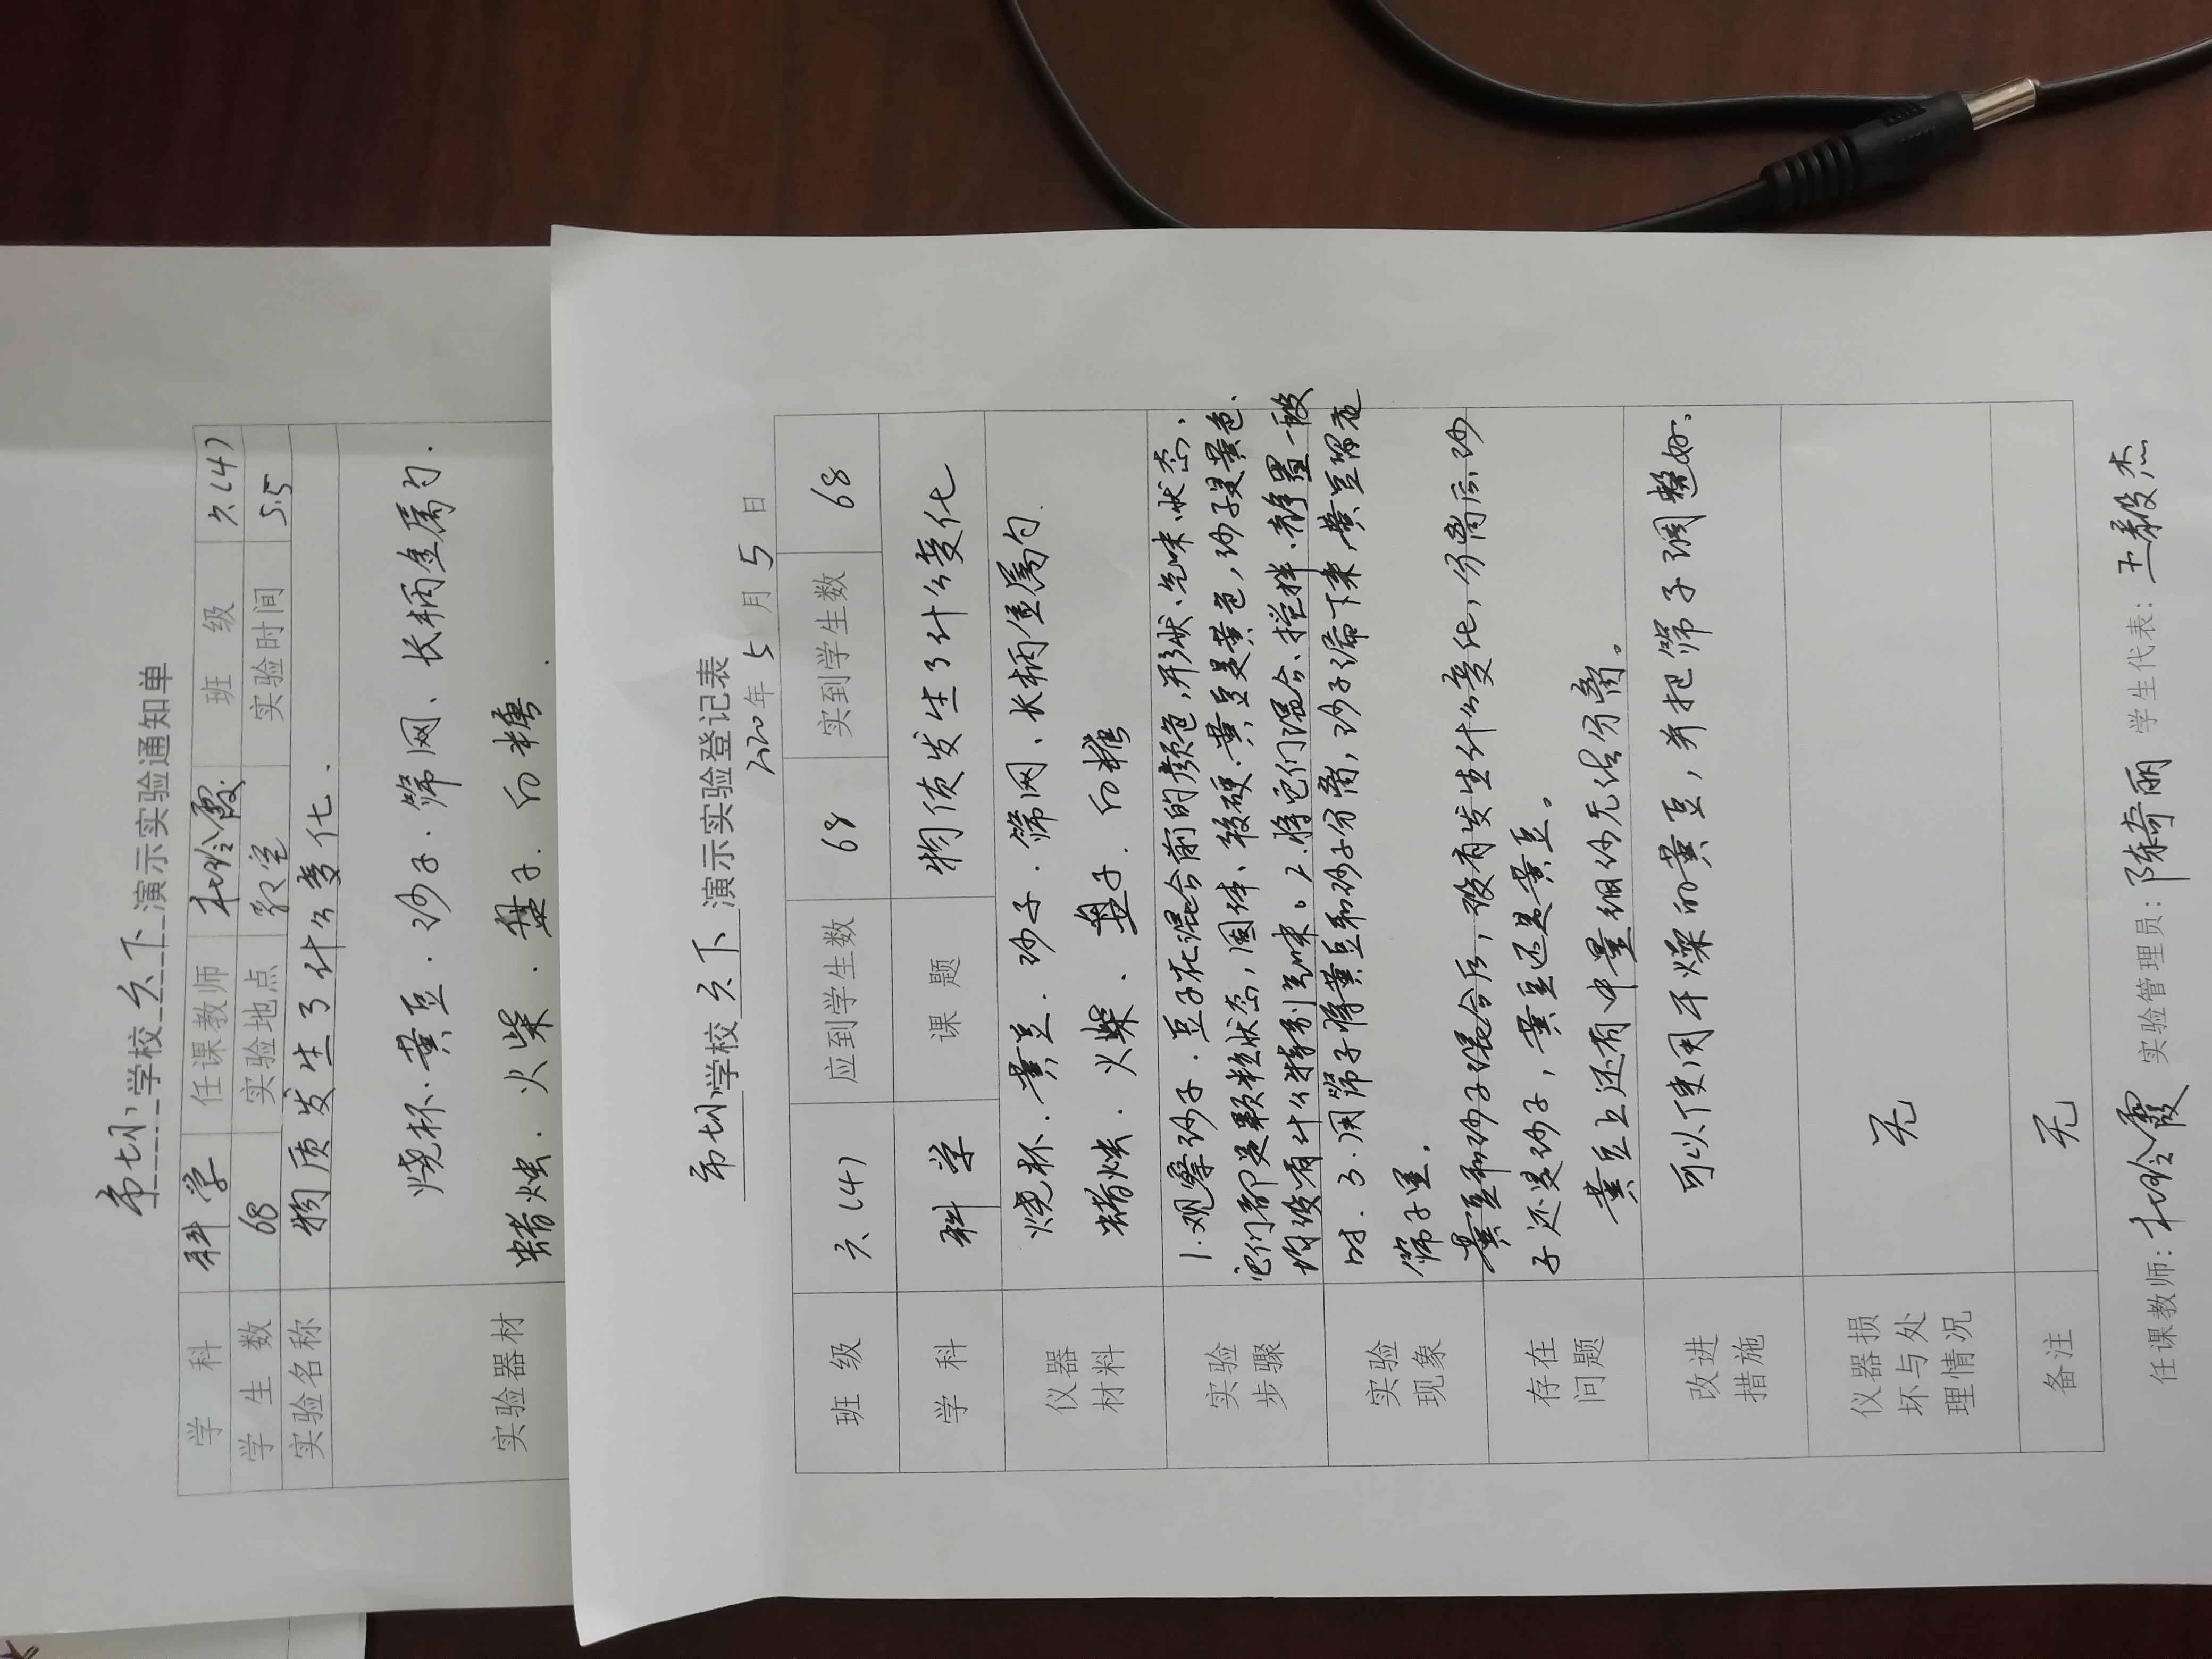 学校 六下 演示实验通知单
学 科 科学 任课教师 杜玲霞 班 级 六(4)
学 生 数 68 实验地点 实验时间 5.5
实验名称 物质发生了什么变化.
实验器材 烧杯.黄豆.沙子.筛网、长柄金属勺.
蜡烛.火柴.盘子.白糖
学校 六下 演示实验登记表
年 5 月 5 日
班 级 六(4) 应到学生数 68 实到学生数 68
学 科 科学 课 题 物质发生了什么变化
仪器
材料
烧杯.黄豆.沙子.筛网、长柄金属勺.
蜡烛.火柴、盘子.白糖
实验
步骤
1.观察沙子.豆子在混合前的颜色,形状.气味.状态,
它们都是颗粒状态,固体、较硬.黄豆是黄色,沙子是黄色.
均没有什么特别气味。2.将它们混合、搅拌.静置一段
时.3.用筛子将黄豆和沙子分离,沙子漏下来,黄豆留在
筛子里.
实验
现象
黄豆和沙子混合后,没有发生什么变化,分离后.沙
子还是沙子,黄豆还是黄豆。
存在
问题
黄豆上还有少量细沙无法分离。
改进
措施
可以使用干燥的黄豆,并把筛子调整好.
仪器损
坏与处
理情况
无
备注
无
任课教师:杜玲霞 实验管理员:陈奇丽 学生代表:王毅杰